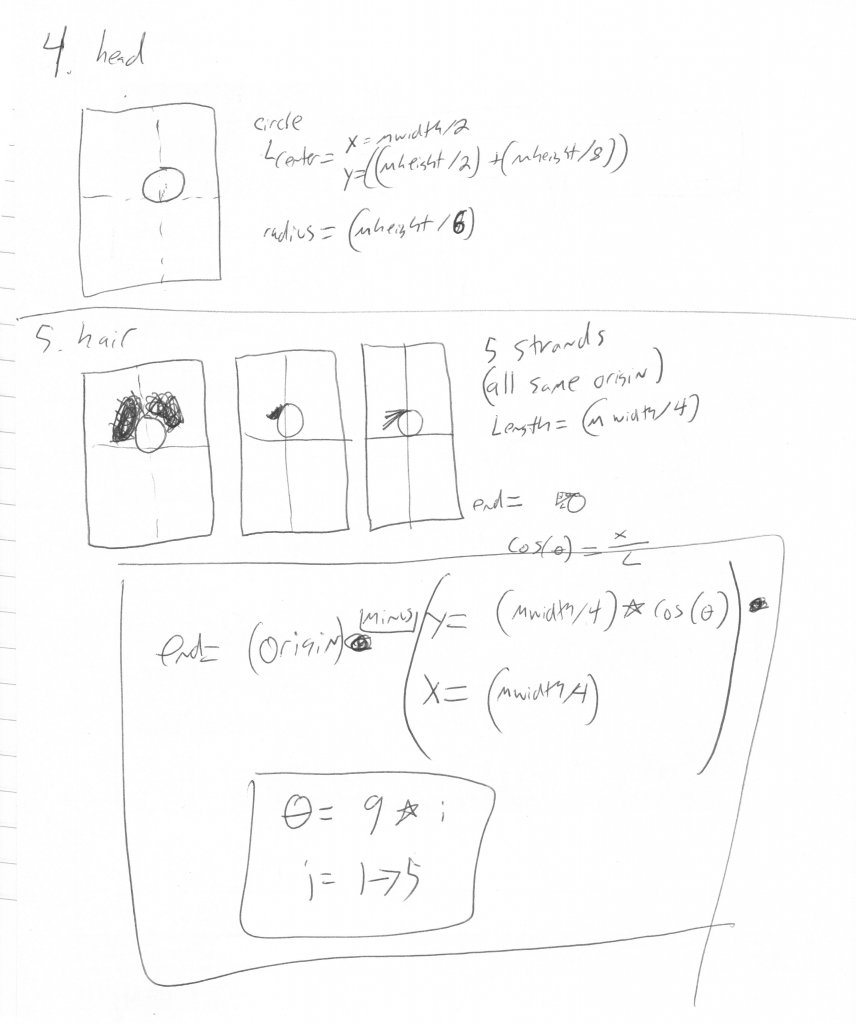 4. head
circle
Lcenter= x = mwidth/2
y=((mheight/2) + (mheight/8))
radius = (mheight/6)
5. hair
5 strands
(all same origin)
Length = (mwidth/4)
end =
cos(θ) = x/L
end= (origin) MINUS (Y= (mwidth/4) * cos(θ))
X= (mwidth/4)
θ= 9 * i
i= 1→5